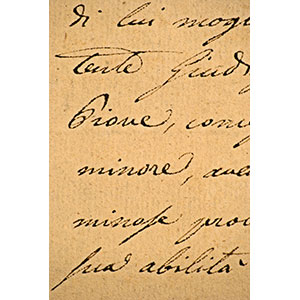 di lui mogl
tente Giud
Piove, con
minore, ave
minase pro
sua abilità